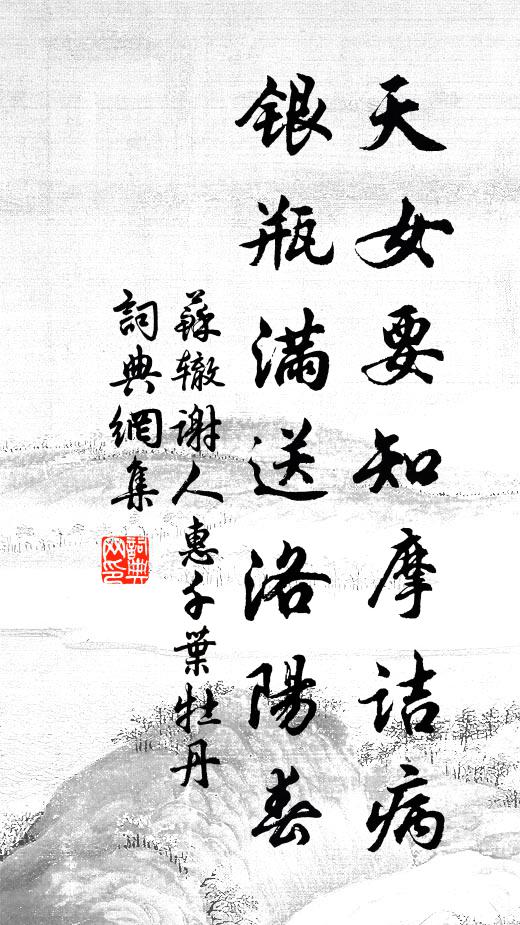 天女要知摩詰病
銀瓶滿送洛陽春
蘇轍謝人惠千葉牡丹
詞典網集
詞典網印